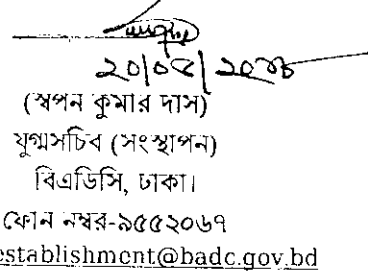 (স্বপন কুমার দাস)
যুগ্মসচিব (সংস্থাপন)
বিএডিসি, ঢাকা।
ফোন নম্বর-৯৫৫২০৬৭
establishment@badc.gov.bd